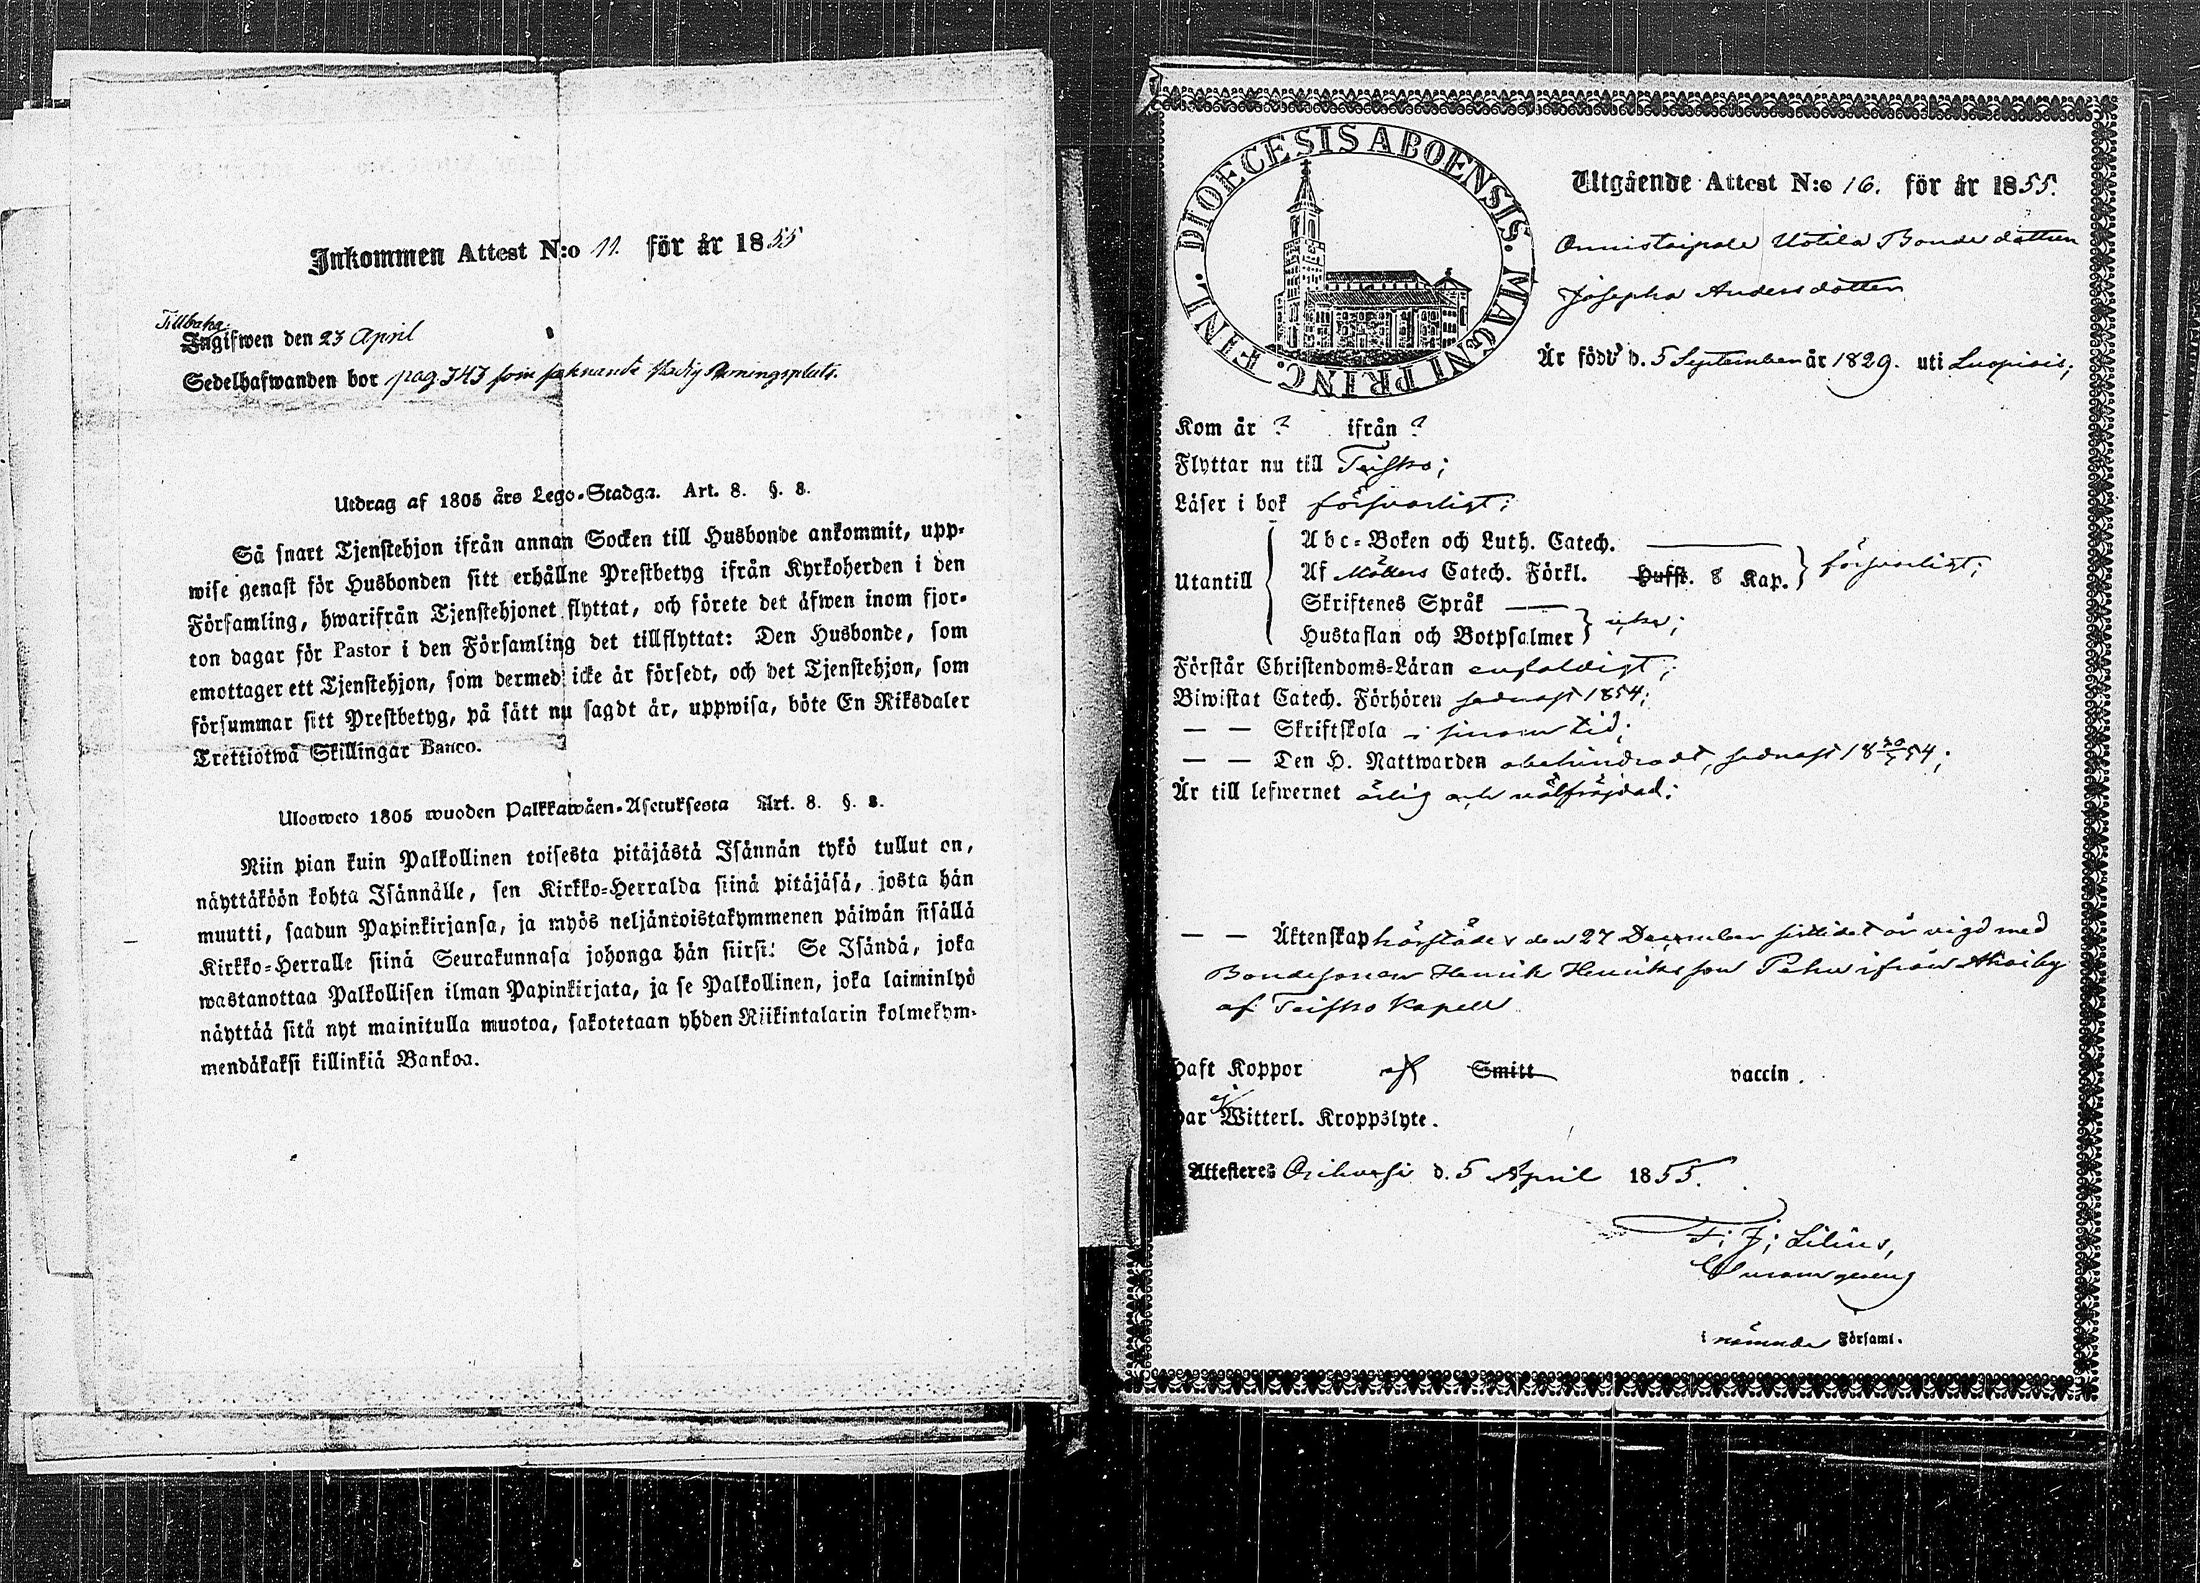 Inkommen Attest N:o 11. för år 1855
Tillbaka
Ingifwen den 23 April
Sedelhafwanden bor pag 343 som saknande stadig
Utdrag af 1805 års Lego-Stadga. Art. 8. §. 8.
Så snart Tjenstehjon ifrån annan Socken till Husbonde ankommit, upp-
wise genast för Husbonden sitt erhållne Prestbetyg ifrån Kyrkoherden i den
Församling, hwarifrån Tjenstehjonet flyttat, och förete det äfwen inom fjor-
ton dagar för Pastor i den Församling det tillflyttat: Den Husbonde, som
emottager ett Tjenstehjon, som dermed icke är försedt, och det Tjenstehjon, som
försummar sitt Prestbetyg, på sätt nu sagdt är, uppwisa, böte En Riksdaler
Trettiotwå Skillingar Banco.
Ulosweto 1805 wuoden Palkkawäen-Asetuksesta Art. 8. §. 8.
Niin pian kuin Palkollinen toisesta pitäjästä Isännän tykö tullut on,
näyttäköön kohta Isännälle, sen Kirkko-Herralda siinä pitäjäsä, josta hän
muutti, saadun Papinkirjansa, ja myös neljäntoistakymmenen päiwän sisällä
Kirkko-Herralle siinä Seurakunnasa johonga hän siirsi: Se Isändä, joka
wastanottaa Palkollisen ilman Papinkirjata, ja se Palkollinen, joka laiminlyö
näyttää sitä nyt mainitulla muotoa, sakotetaan yhden Riikintalarin kolmekym-
mendäkaksi killinkiä Bankoa.
DIOECESIS ABOENSIS. MAGNI PRINC. FINL.
Utgående Attest N:o 16. för år 1855.
Onnistaipale Uotila Bonde dottren
Josepha Andersdotter
Är född d. 5 September år 1829. uti Luopiois;
Kom år ? ifrån ?
Flyttar nu till Teisko;
Läser i bok försvarligt;
Utantill
Abc-Boken och Luth. Catech.
Af Möllers Catech. Förkl. Hufst. 8 Kap. försvarligt;
Skriftenes Språk
Hustaflan och Botpsalmer icke;
Förstår Christendoms-Läran enfaldigt;
Biwistat Catech. Förhören sednast 1854;
— — Skriftskola i sinom tid;
— — Den H. Nattwarden obehindradt, sednast 18 54;
Är till lefwernet ärlig och välfräjdad;
— — Äktenskap hörstädes den 27 December sistlidet år vigd med
Bondesonen Henrik Henriksson Pehu ifrån
af Teisko Kapell
Haft Koppor Smitt vaccin.
Har ej Witterl. Kroppslyte.
Attesteres Orihvesi d. 5 April 1855.
F. J. Lilius,
i nämnde Församl.